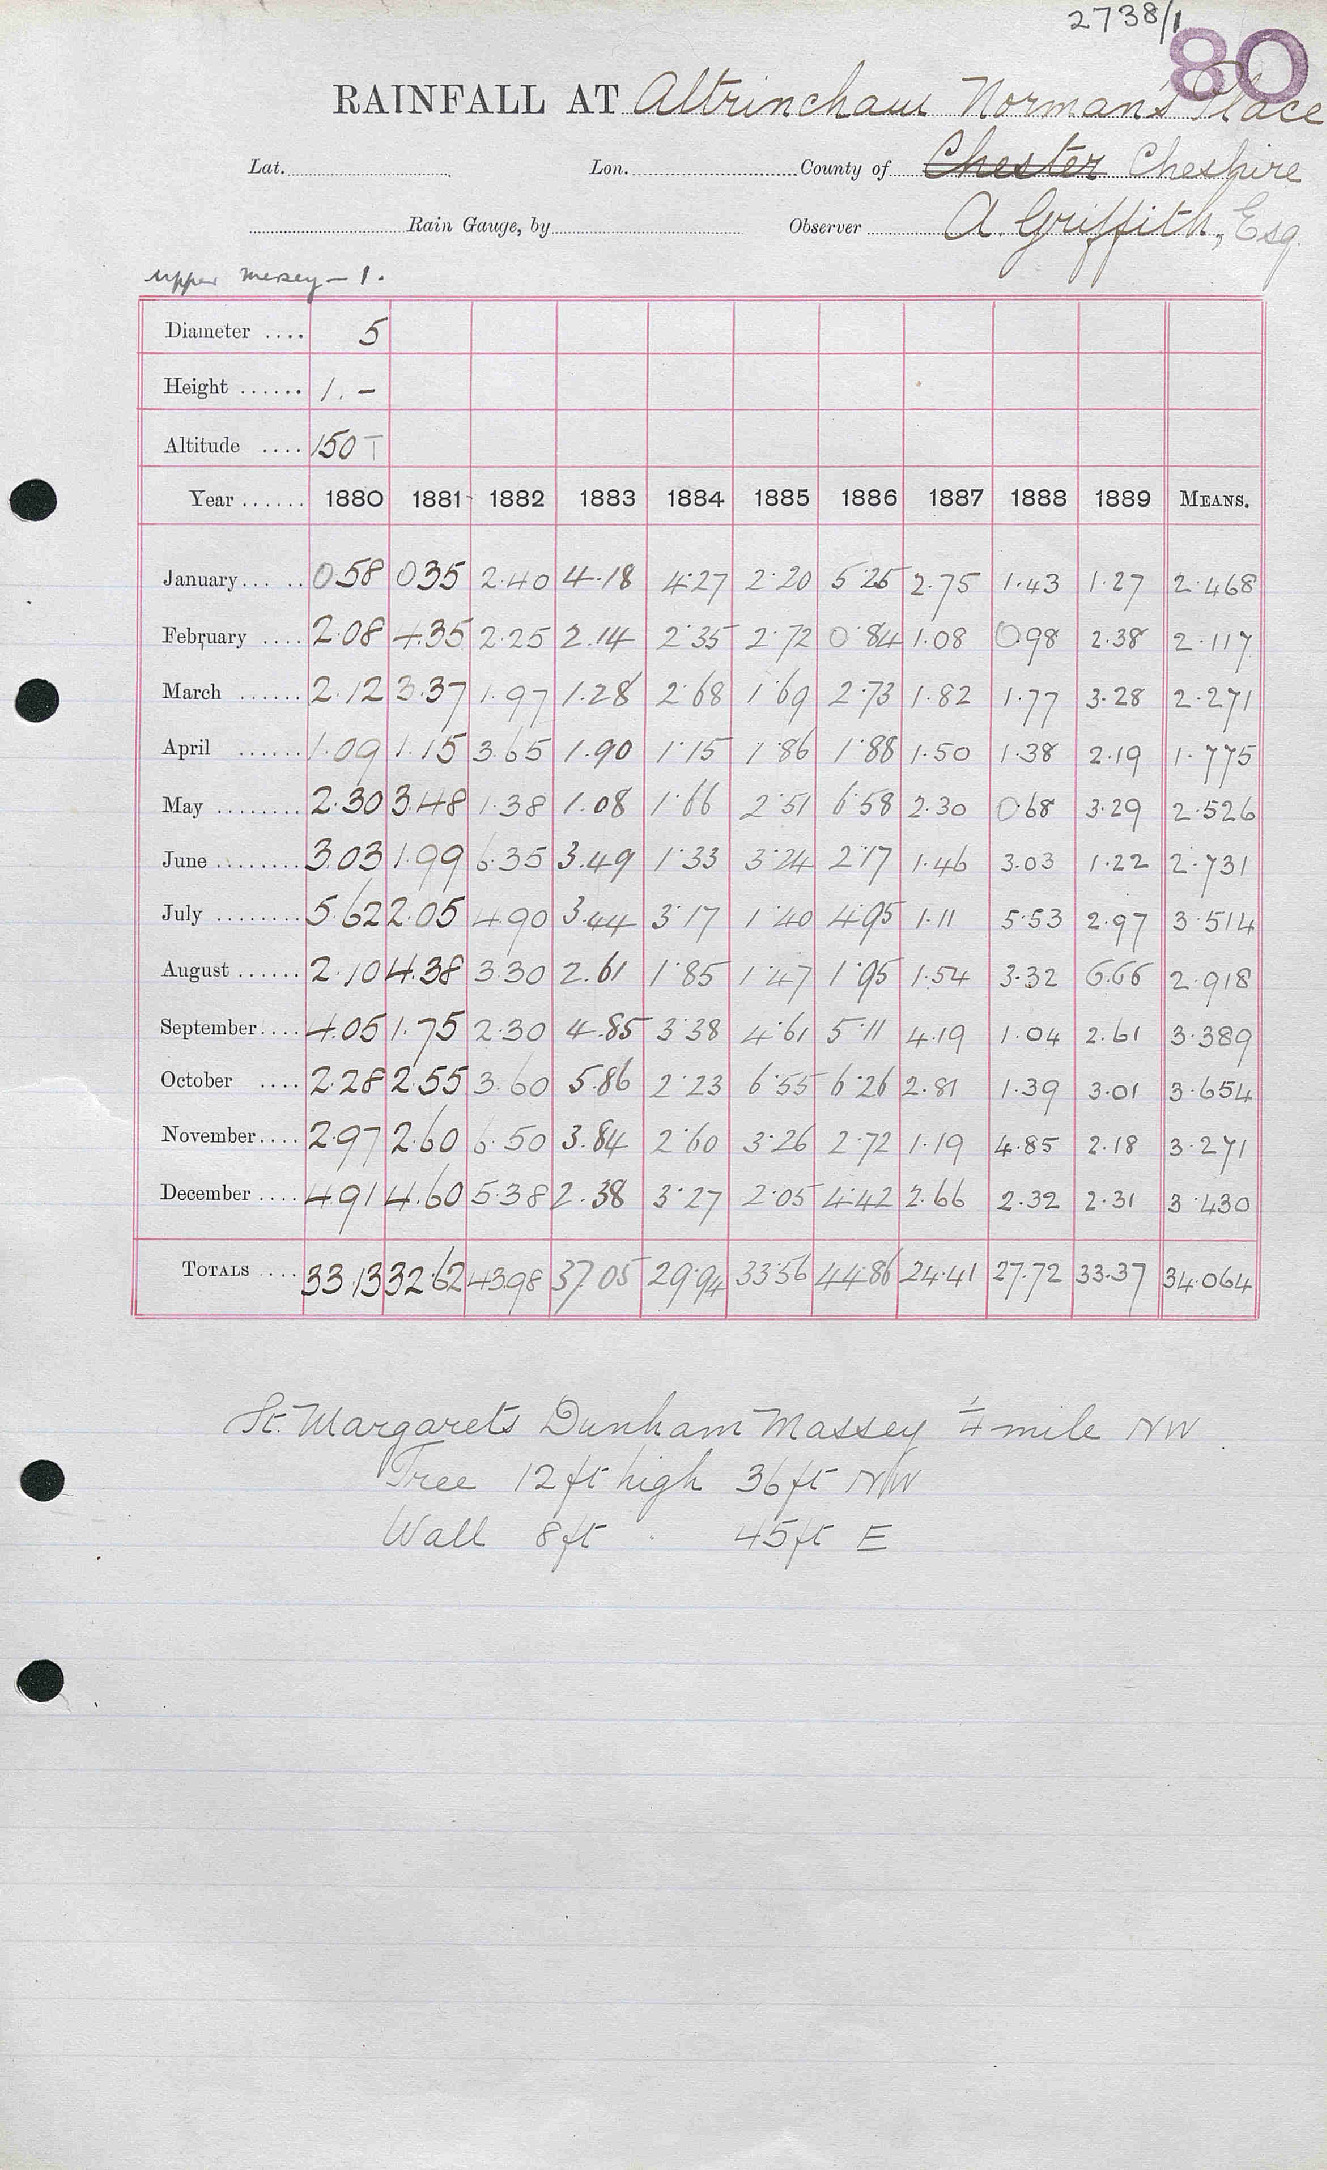 2738/1
80
RAINFALL AT Altrincham Norman's Place
Lat. Lon. County of Chester Cheshire
Rain Gauge, by Observer A Griffith, Esq
Upper Mersey – 1.
Diameter .... 5
Height ...... 1. –
Altitude .... 150 T
Year ...... 1880 1881 1882 1883 1884 1885 1886 1887 1888 1889 MEANS.
January ... .. 0.58 0.35 2.40 4.18 4.27 2.20 5.25 2.75 1.43 1.27 2.468
February .... 2.08 4.35 2.25 2.14 2.35 2.72 0.84 1.08 0.98 2.38 2.117
March ...... 2.12 3.37 1.97 1.28 2.68 1.69 2.73 1.82 1.77 3.28 2.271
April ...... 1.09 1.15 3.65 1.90 1.15 1.86 1.88 1.50 1.38 2.19 1.775
May ........ 2.30 3.48 1.38 1.08 1.66 2.51 6.58 2.30 0.68 3.29 2.526
June ........ 3.03 1.99 6.35 3.49 1.33 3.24 2.17 1.46 3.03 1.22 2.731
July ........ 5.62 2.05 4.90 3.44 3.17 1.40 4.95 1.11 5.53 2.97 3.514
August ...... 2.10 4.38 3.30 2.61 1.85 1.47 1.95 1.54 3.32 6.66 2.918
September .... 4.05 1.75 2.30 4.85 3.38 4.61 5.11 4.19 1.04 2.61 3.389
October .... 2.28 2.55 3.60 5.86 2.23 6.55 6.26 2.81 1.39 3.01 3.654
November .... 2.97 2.60 6.50 3.84 2.60 3.26 2.72 1.19 4.85 2.18 3.271
December .... 4.91 4.60 5.38 2.38 3.27 2.05 4.42 2.66 2.32 2.31 3.430
TOTALS .... 33.13 32.62 43.98 37.05 29.94 33.56 44.86 24.41 27.72 33.37 34.064
St. Margarets Dunham Massey ¼ mile NW
Tree 12 ft high 36 ft NW
Wall 8 ft 45 ft E